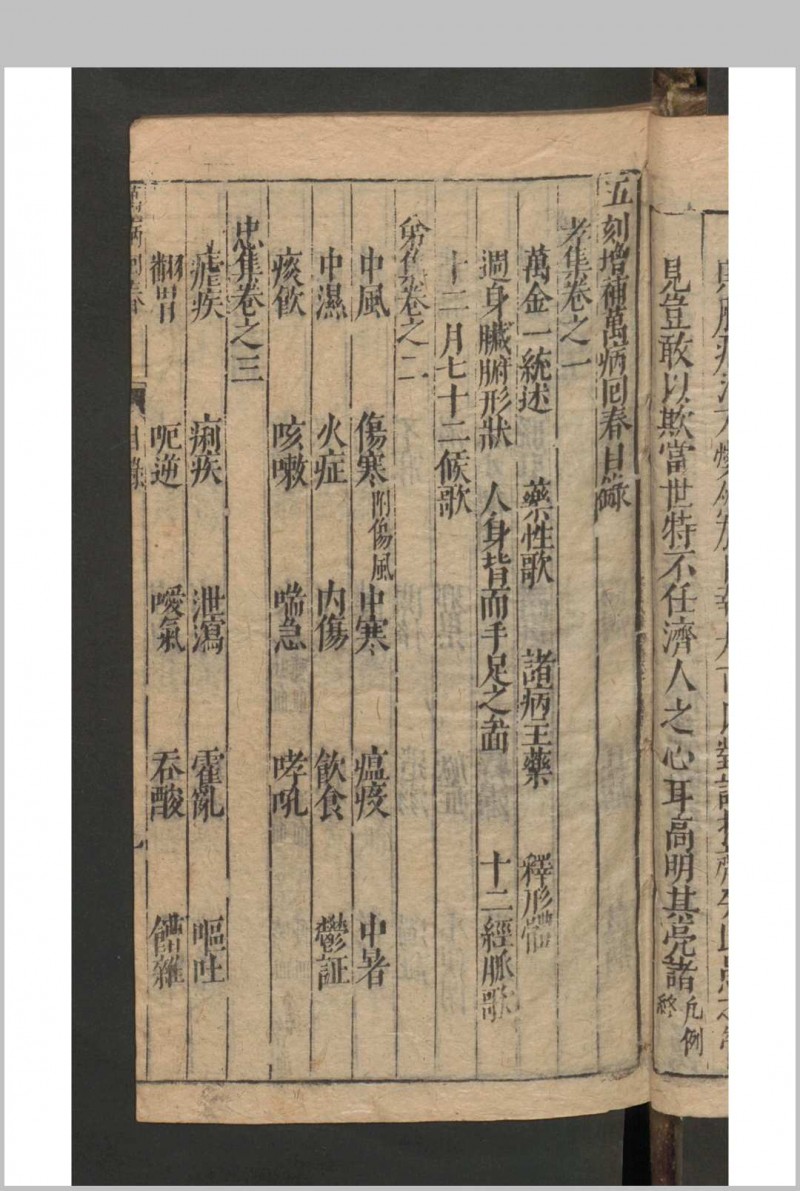 見豈敢以欺當世特不任濟人之心耳高明其亮諸 凡例終
五刻增補萬病回春目錄
孝集卷之一
萬金一統述 藥性歌 諸病主藥 釋形體
週身臟腑形狀 人身背面手足之圖 十二經脈歌
十二月七十二候歌
弟集卷之二
中風 傷寒附傷風 中寒 瘟疫 中暑
中濕 火症 內傷 飲食 鬱証
痰飲 咳嗽 喘急 哮吼
忠集卷之三
瘧疾 痢疾 泄瀉 霍亂 嘔吐
翻胃 呃逆 噯氣 吞酸 嘈雜
萬病回春 目錄